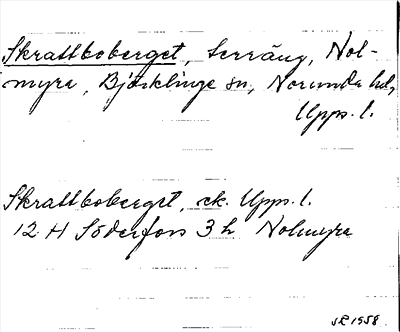 Skrattboberget, terräng, Nol-
myra, Björklinge sn, Norunda hd,
Upps. l.
Skrattboberget, ek. Upps. l.
12 H Söderfors 3 h Nolmyra
SE 1958